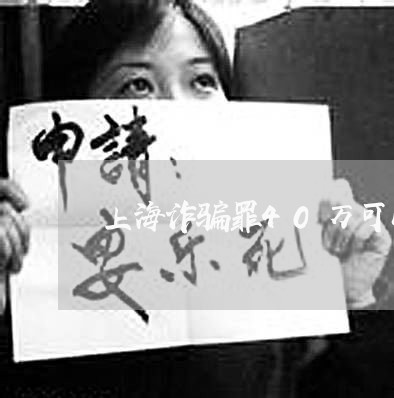 申請：
上海诈骗罪40万可
安乐死